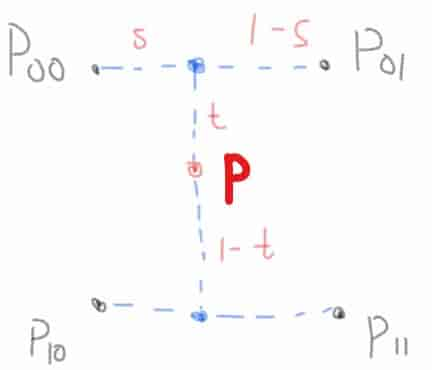 P00 s 1-s P01
t
P
1-t
P10 P11